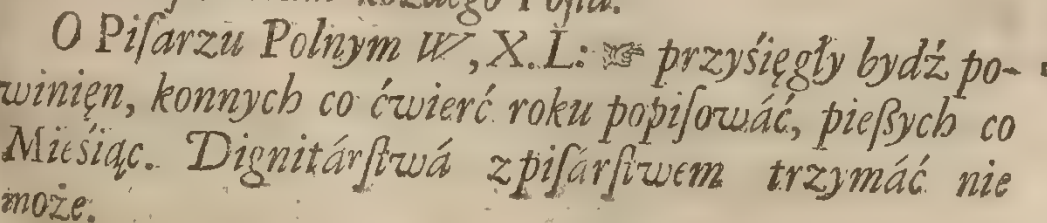 każdego Posła.
O Piſarzu Polnym W, X. L: ☞ przyśięgły bydź po-
winięn, konnych co ćwierć roku popiſowáć, pieſzych co
Mieśiąc. Dignitárſtwá z piſárſtwem trzymáć nie
może.